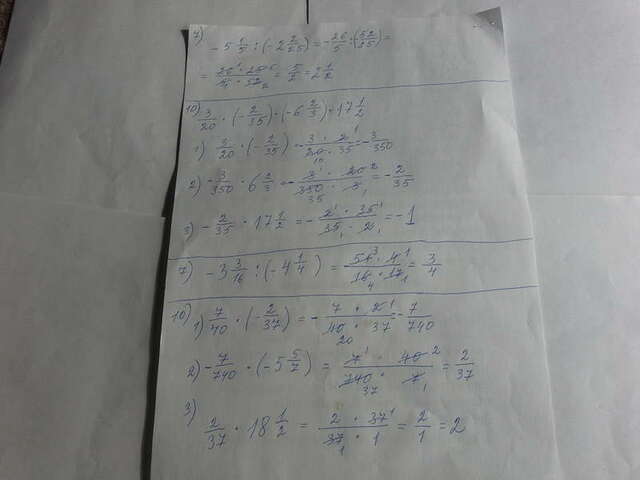 7) -5 1/5 : (-2 2/25) = -26/5 : (52/25) =
= 26 ¹ · 25 / 5 · 52 ₂ = 5/2 = 2 1/2
10) 3/20 · (-2/35) · (-6 2/3) · 17 1/2
1) 3/20 · (-2/35) = -3 · 2 ¹ / 20 ₁₀ · 35 = -3/350
2) -3/350 · 6 2/3 = -3 ¹ · 20 ² / 350 ₃₅ · 3 ₁ = -2/35
3) -2/35 · 17 1/2 = -2 ¹ · 35 ¹ / 35 ₁ · 2 ₁ = -1
7) -3 3/16 : (-4 1/4) = 51 ³ · 4 ¹ / 16 ₄ · 17 ₁ = 3/4
10) 1) 7/40 · (-2/37) = -7 · 2 ¹ / 40 ₂₀ · 37 = -7/740
2) -7/740 · (-5 5/7) = 7 ¹ · 40 ² / 740 ₃₇ · 7 ₁ = 2/37
3)
2/37 · 18 1/2 = 2 · 37 ¹ / 37 ₁ · 1 = 2/1 = 2